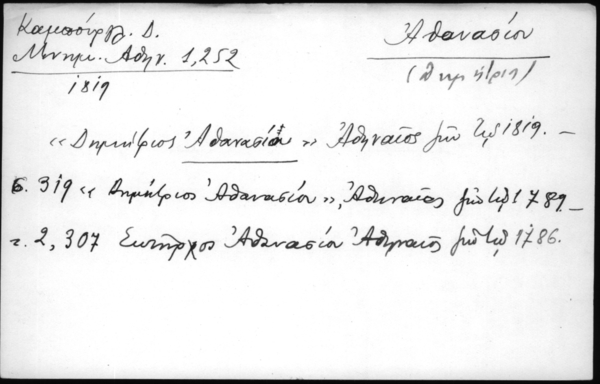 Καμπούρογλ. Δ.
Μνημ. Αθην. 1,252
1819
Ἀθανασίου
(Δημήτρης)
«Δημήτριος Ἀθανασίου» Ἀθηναῖος ζῶν τῷ 1819. —
σ. 319 «Δημήτριος Ἀθανασίου», Ἀθηναῖος ζῶν τῷ 1789 —
τ. 2, 307 Ἀθανασίου Ἀθηναῖος ζῶν τῷ 1786.